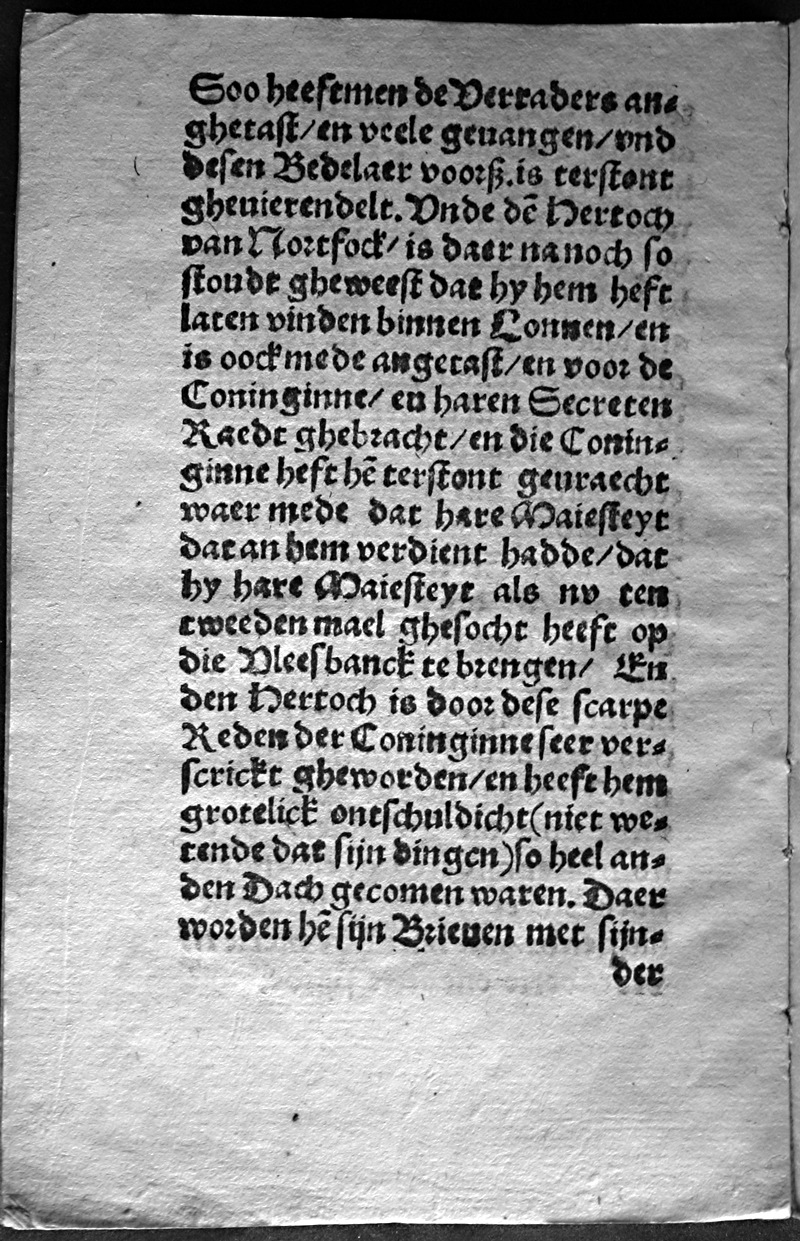 Soo heeftmen de Verraders an⸗
ghetast/en veele geuangen/vnd
desen Bedelaer voorß.is terstont
gheuierendelt. Vnde dē Hertoch
van Nortfock/ is daer na noch so
stoudt gheweest dat hy hem heft
laten vinden binnen Lonnen/en
is oock mede angetast/en voor de
Coninginne/ en haren Secreten
Raedt ghebracht/en die Conin⸗
ginne heft hē terstont geuraecht
waer mede dat hare Maiesteyt
dat an hem verdient hadde/dat
hy hare Maiesteyt als nv ten
tweeden mael ghesocht heeft op
die Vleesbanck te brengen/ En
den Hertoch is door dese scarpe
Reden der Coninginne seer ver⸗
scrickt gheworden/en heeft hem
grotelick ontschuldicht(niet we⸗
tende dat sijn dingen)so heel an⸗
den Dach gecomen waren. Daer
worden hē sijn Brieuen met sijn⸗
der